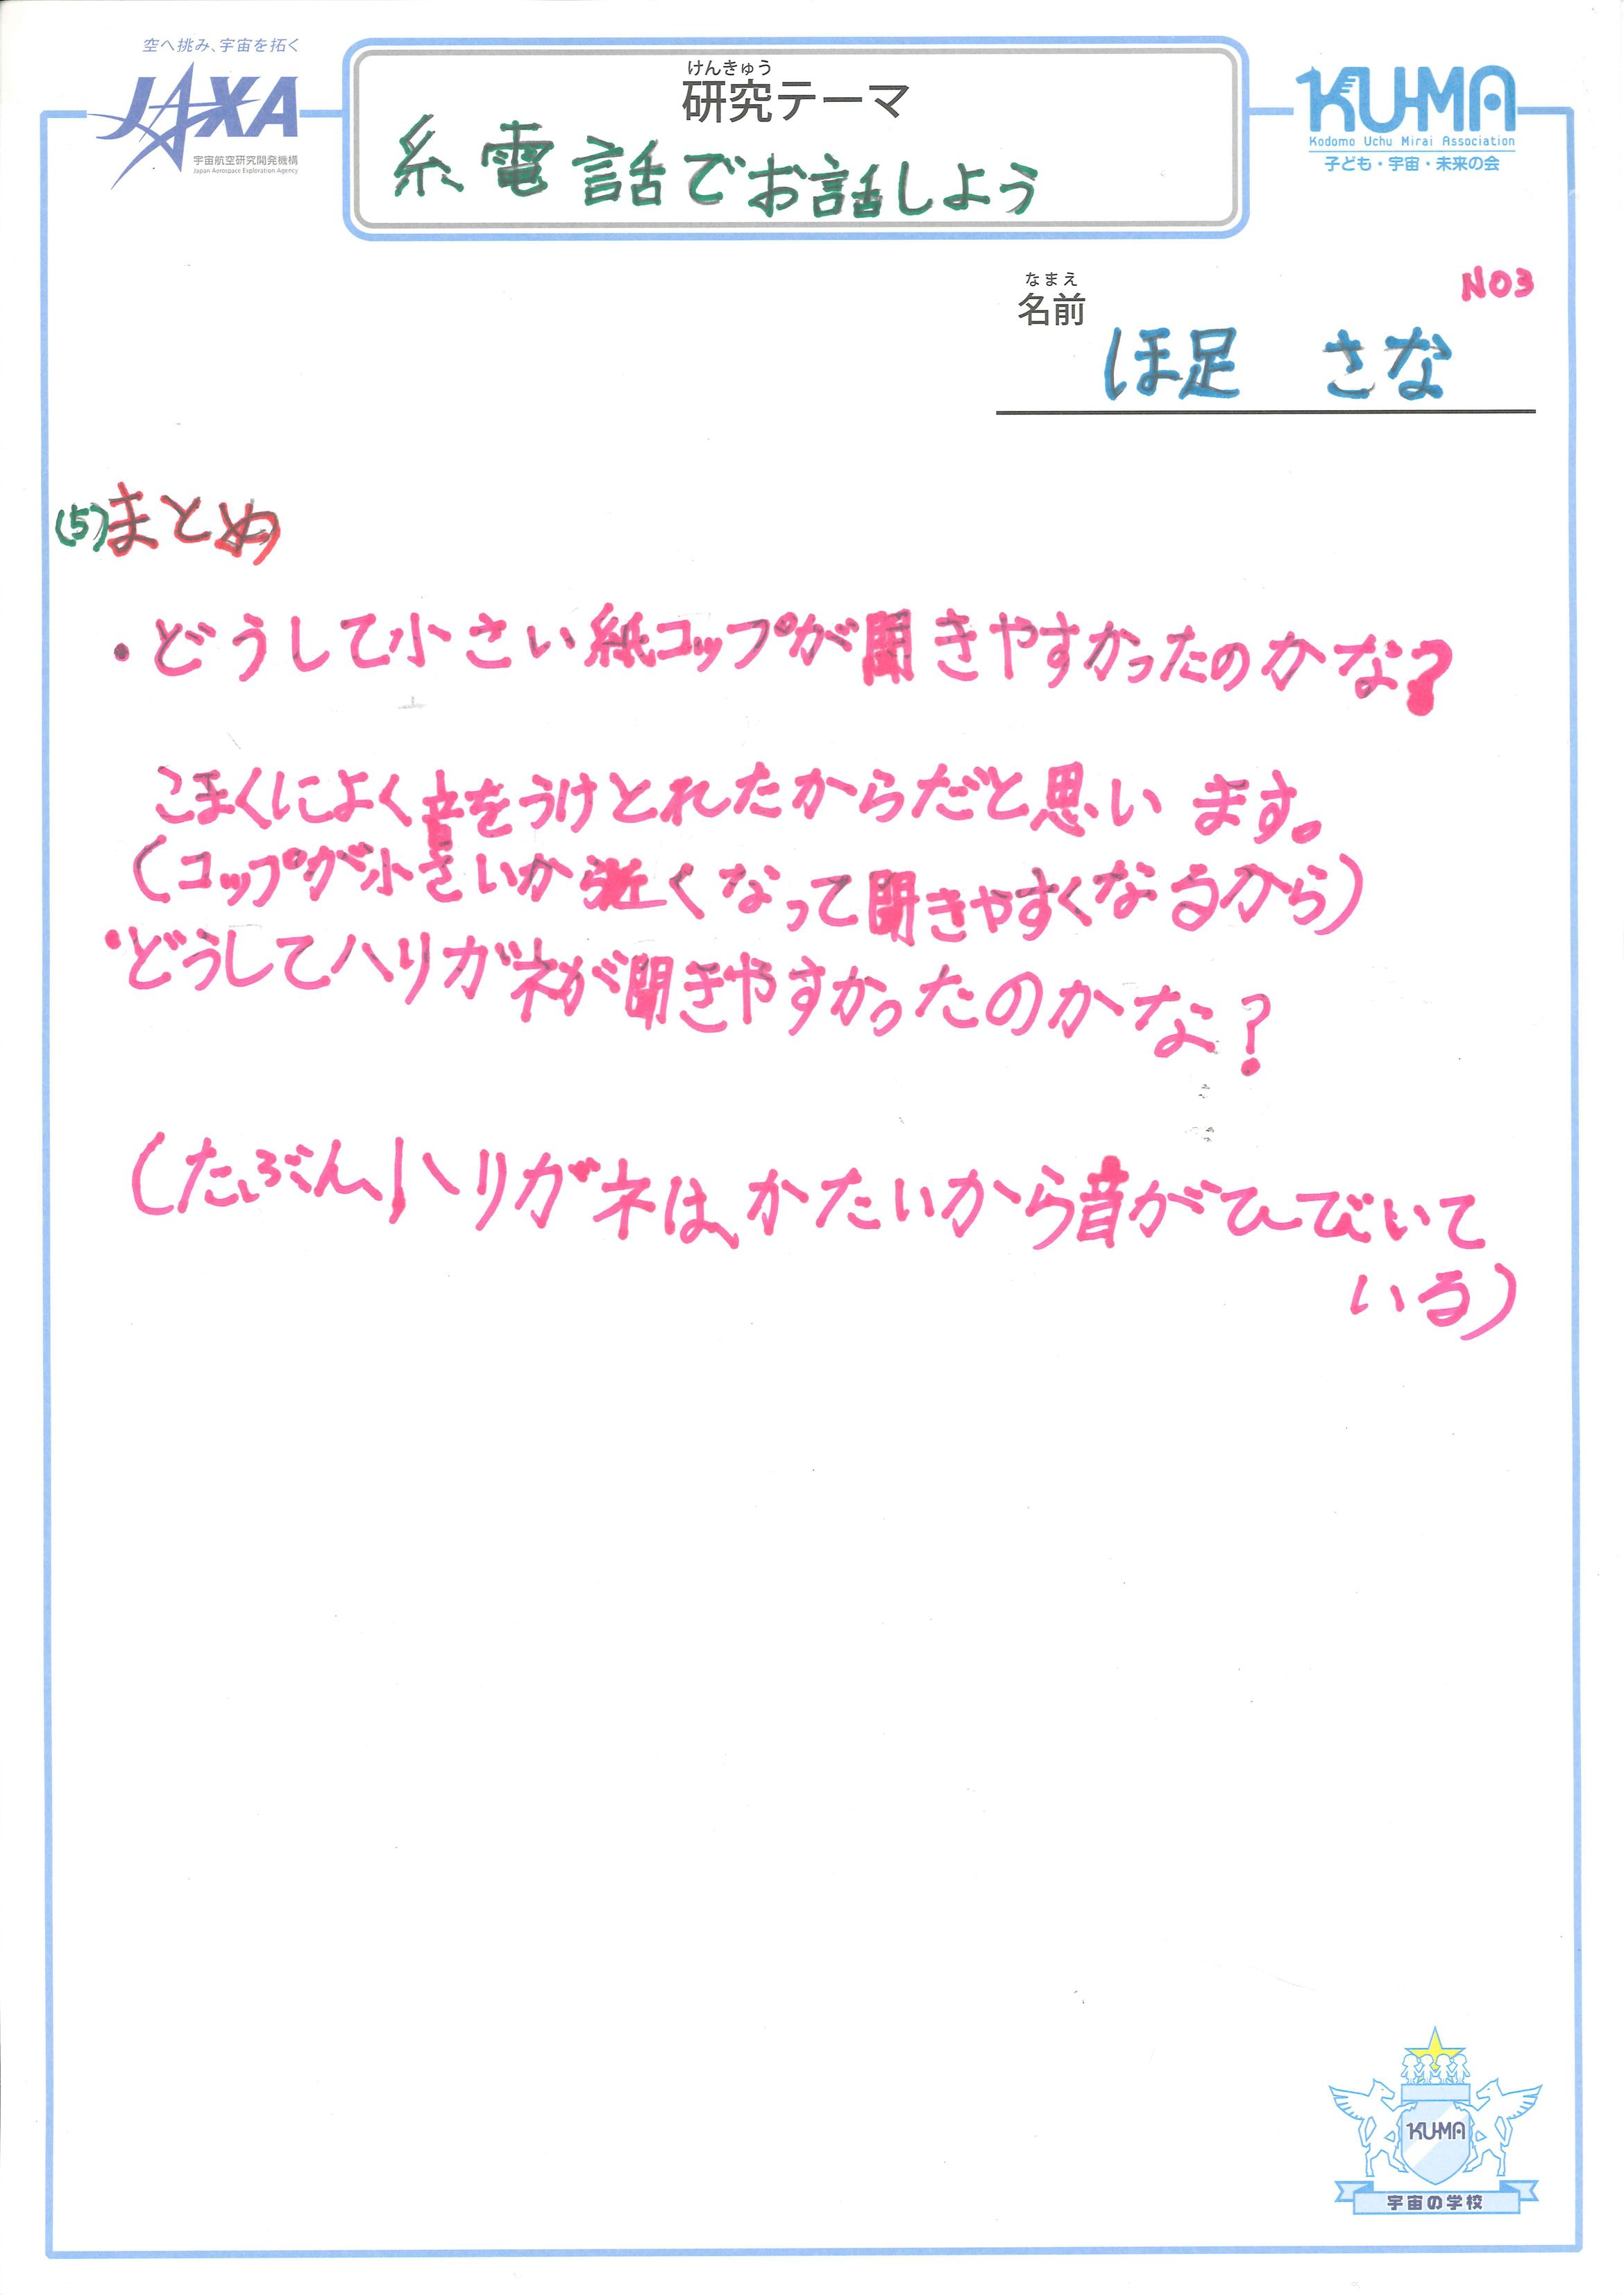 空へ挑み、宇宙を拓く
JAXA
宇宙航空研究開発機構
Japan Aerospace Exploration Agency
けんきゅう
研究テーマ
糸電話でお話しよう
KU-MA
Kodomo Uchu Mirai Association
子ども・宇宙・未来の会
NO3
なまえ
名前
ほ足 さな
(5)まとめ
・どうして小さい紙コップが聞きやすかったのかな?
こまくによく音をうけとれたからだと思います。
(コップが小さいから近くなって聞きやすくなるから)
・どうしてハリガネが聞きやすかったのかな?
(たぶん、ハリガネは、かたいから音がひびいて
いる)
KU-MA
宇宙の学校